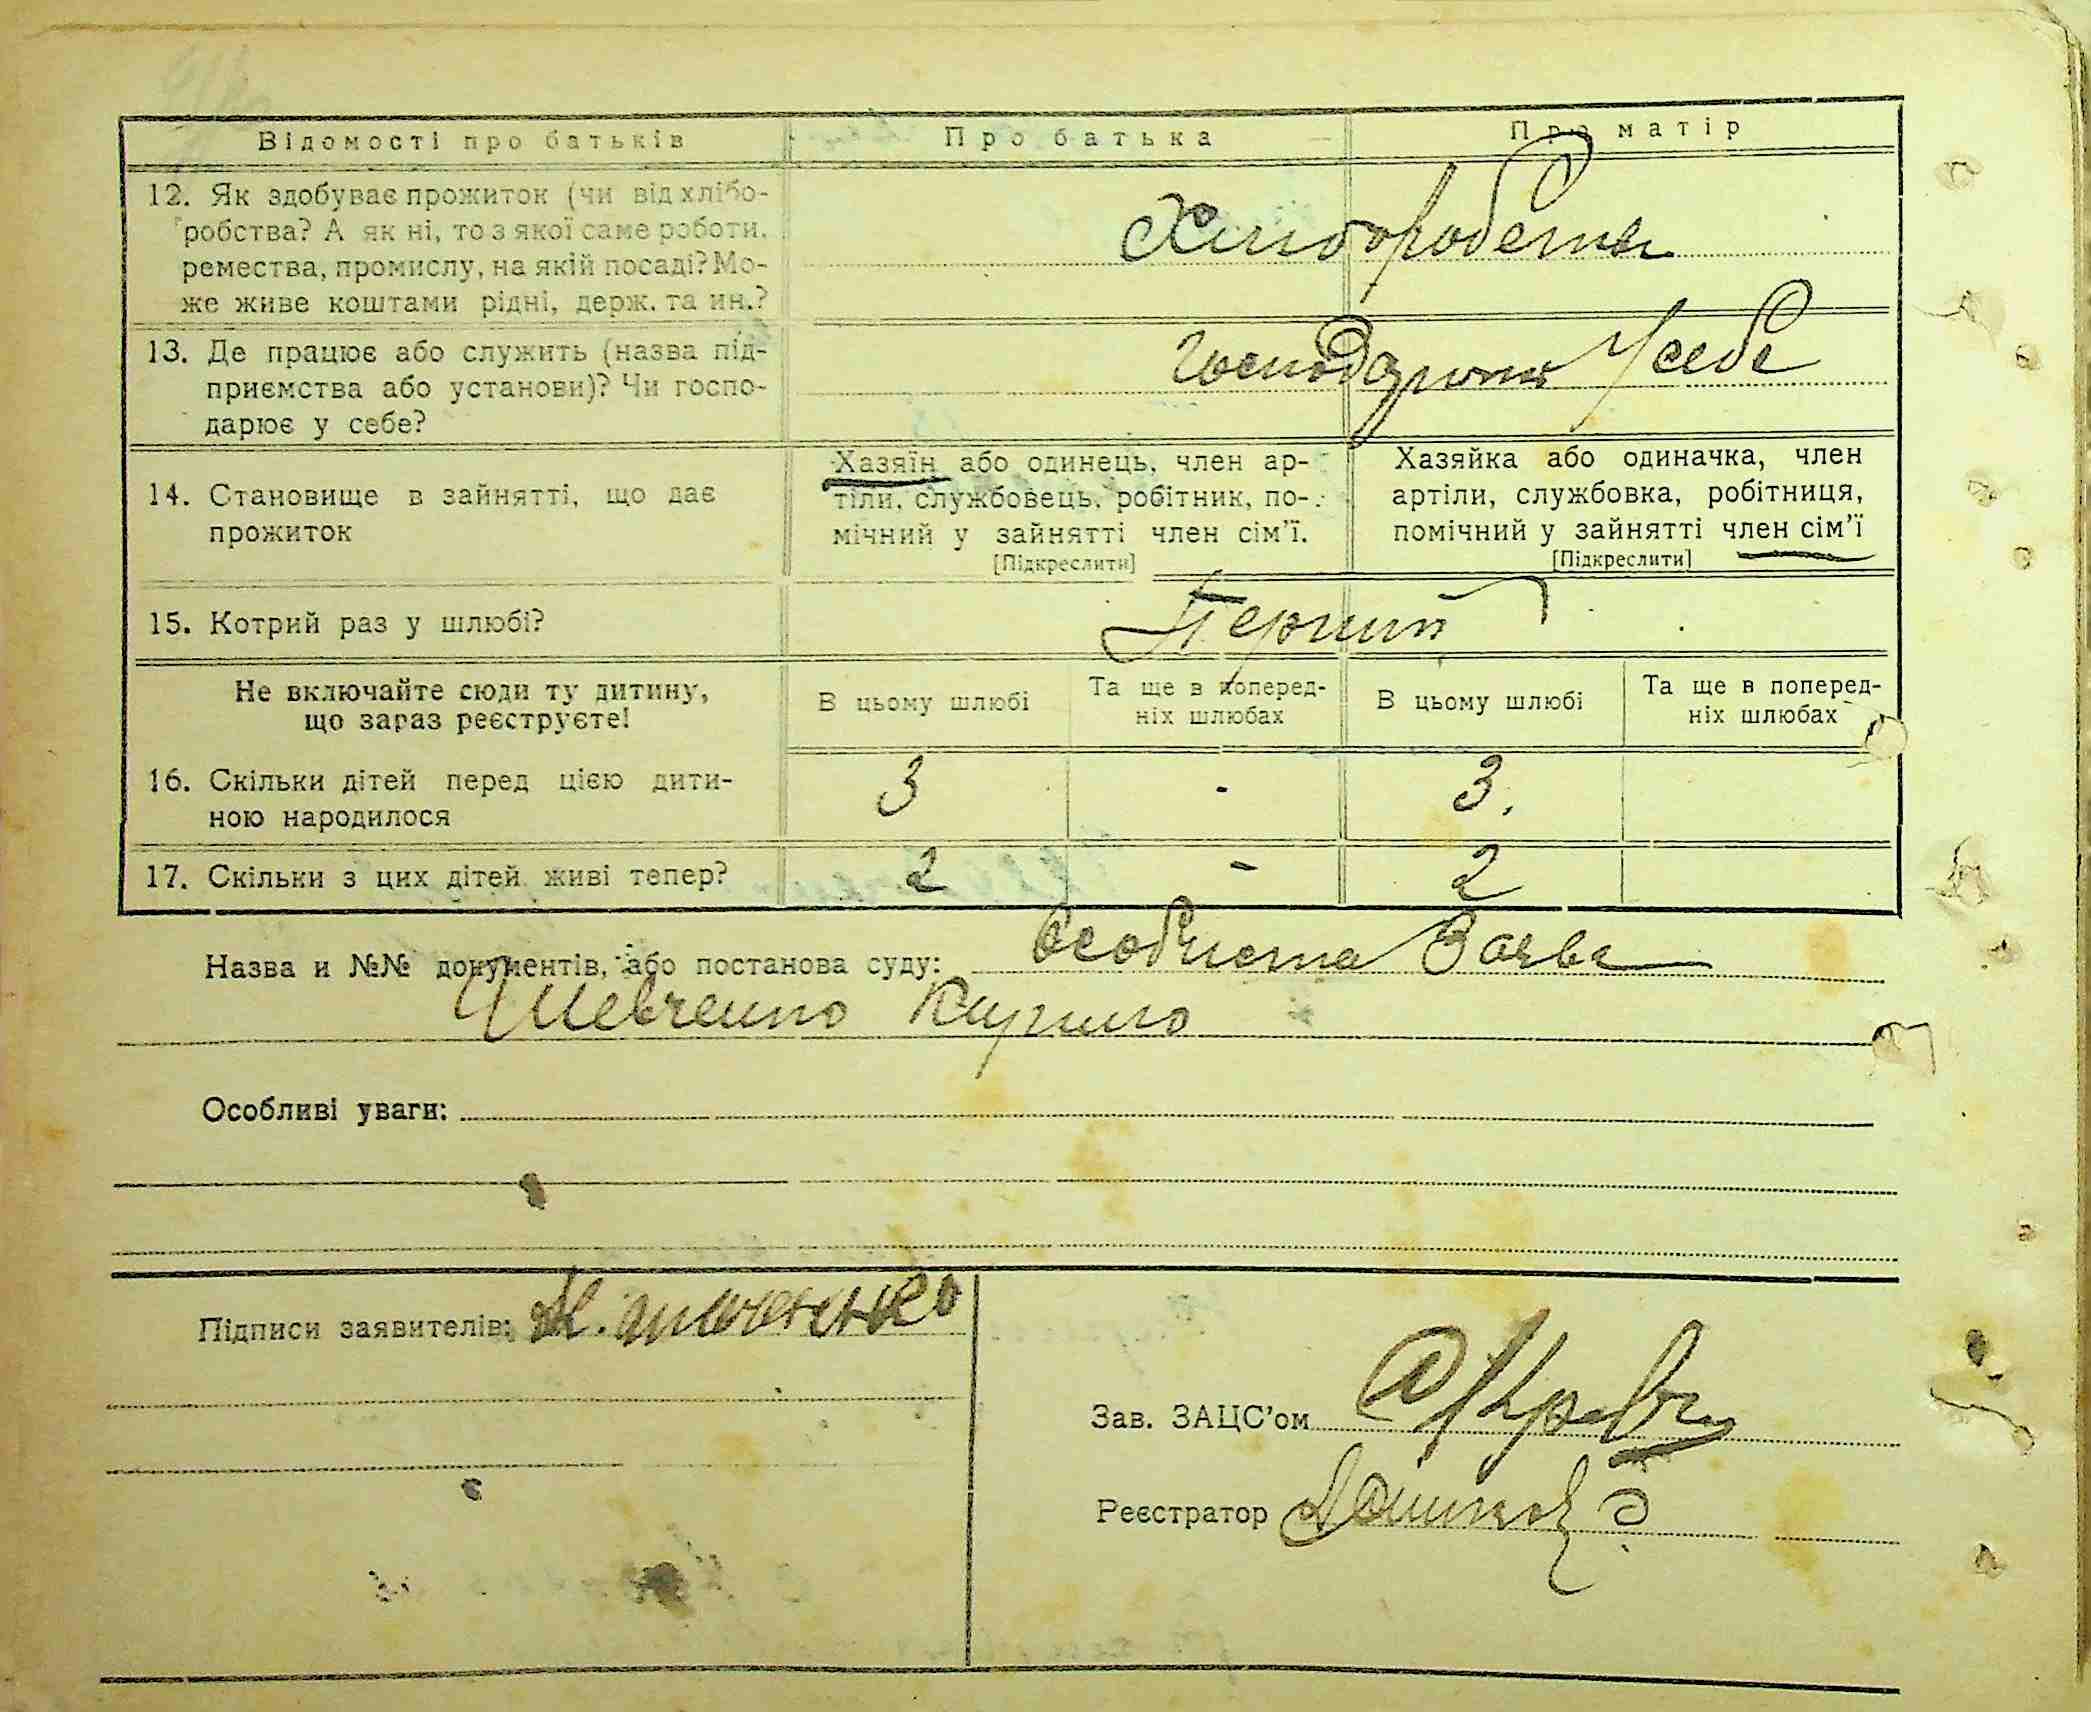 Відомості про батьків Про батька Про матір
12. Як здобуває прожиток (чи від хлібо-
робства? А як ні, то з якої саме роботи,
ремества, промислу, на якій посаді? Мо-
же живе коштами рідні, держ. та ин.?
Хліборобств
13. Де працює або служить (назва під-
приємства або установи)? Чи госпо-
дарює у себе?
Господарюють У себе
14. Становище в зайнятті, що дає
прожиток
Хазяїн або одинець, член ар-
тіли, службовець, робітник, по-
мічний у зайнятті член сім'ї.
[Підкреслити]
Хазяйка або одиначка, член
артіли, службовка, робітниця,
помічний у зайнятті член сім'ї
[Підкреслити]
15. Котрий раз у шлюбі? Перший
Не включайте сюди ту дитину,
що зараз реєструєте!
В цьому шлюбі
Та ще в поперед-
ніх шлюбах
В цьому шлюбі
Та ще в поперед-
ніх шлюбах
16. Скільки дітей перед цією дити-
ною народилося
3 - 3.
17. Скільки з цих дітей живі тепер? 2 - 2
Назва и №№ документів, або постанова суду: Особиста Заява
Шевченко Кирило
Особливі уваги:
Підписи заявителів:
Зав. ЗАЦС'ом
Реєстратор